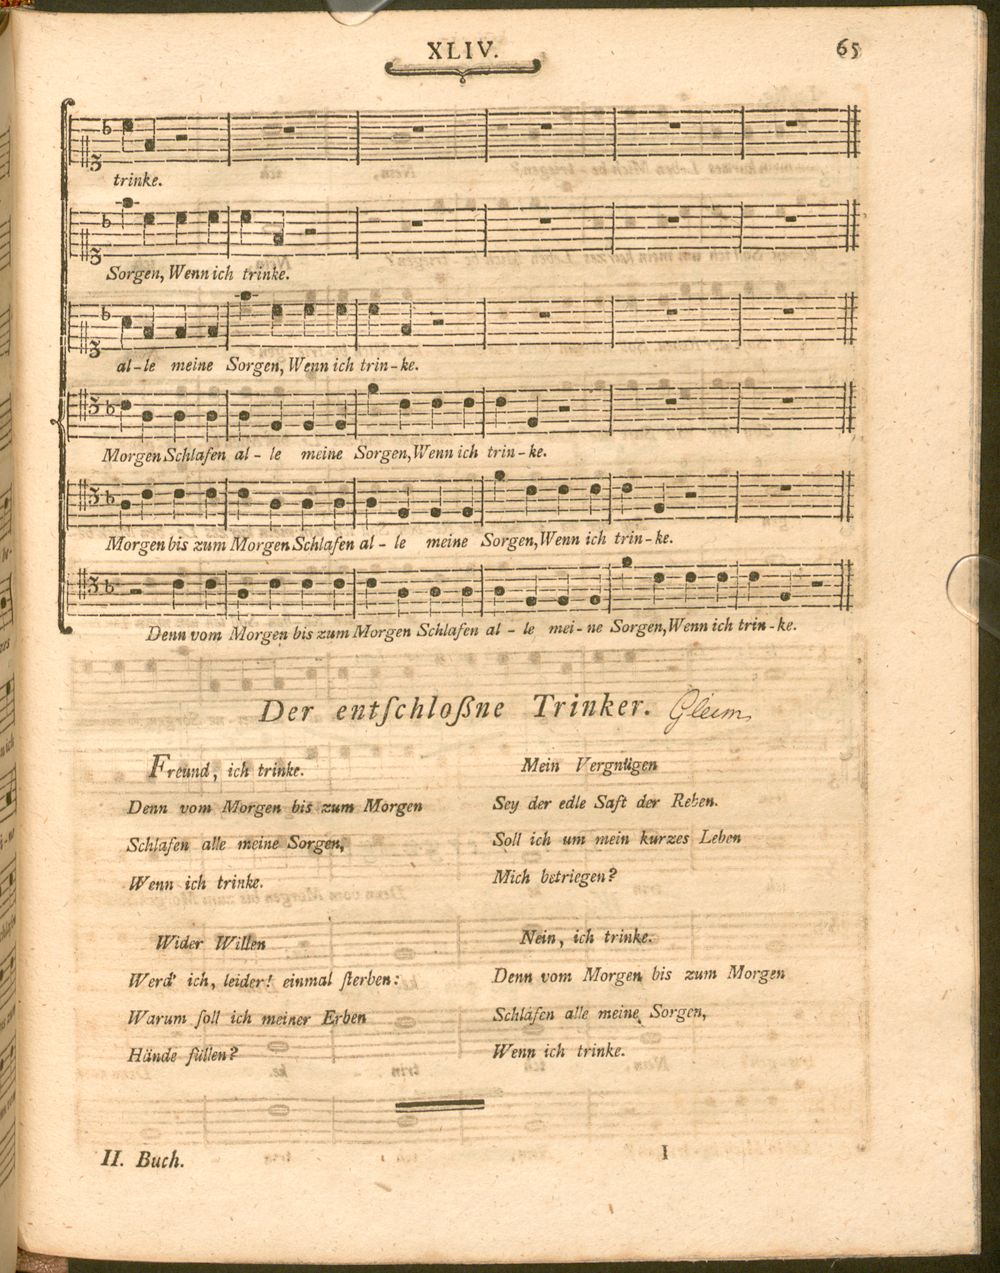 XLIV.
65
trinke.
Sorgen, Wenn ich trinke.
al-le meine Sorgen, Wenn ich trin-ke.
Morgen Schlafen al - le meine Sorgen, Wenn ich trin-ke.
Morgen bis zum Morgen Schlafen al - le meine Sorgen, Wenn ich trin-ke.
Denn vom Morgen bis zum Morgen Schlafen al - le mei-ne Sorgen, Wenn ich trin-ke.
Der entſchloßne Trinker. Gleim
Freund, ich trinke.
Denn vom Morgen bis zum Morgen
Schlafen alle meine Sorgen,
Wenn ich trinke.
Wider Willen
Werd' ich, leider! einmal ſterben:
Warum ſoll ich meiner Erben
Hände füllen?
Mein Vergnügen
Sey der edle Saft der Reben.
Soll ich um mein kurzes Leben
Mich betriegen?
Nein, ich trinke.
Denn vom Morgen bis zum Morgen
Schlafen alle meine Sorgen,
Wenn ich trinke.
II. Buch.
I